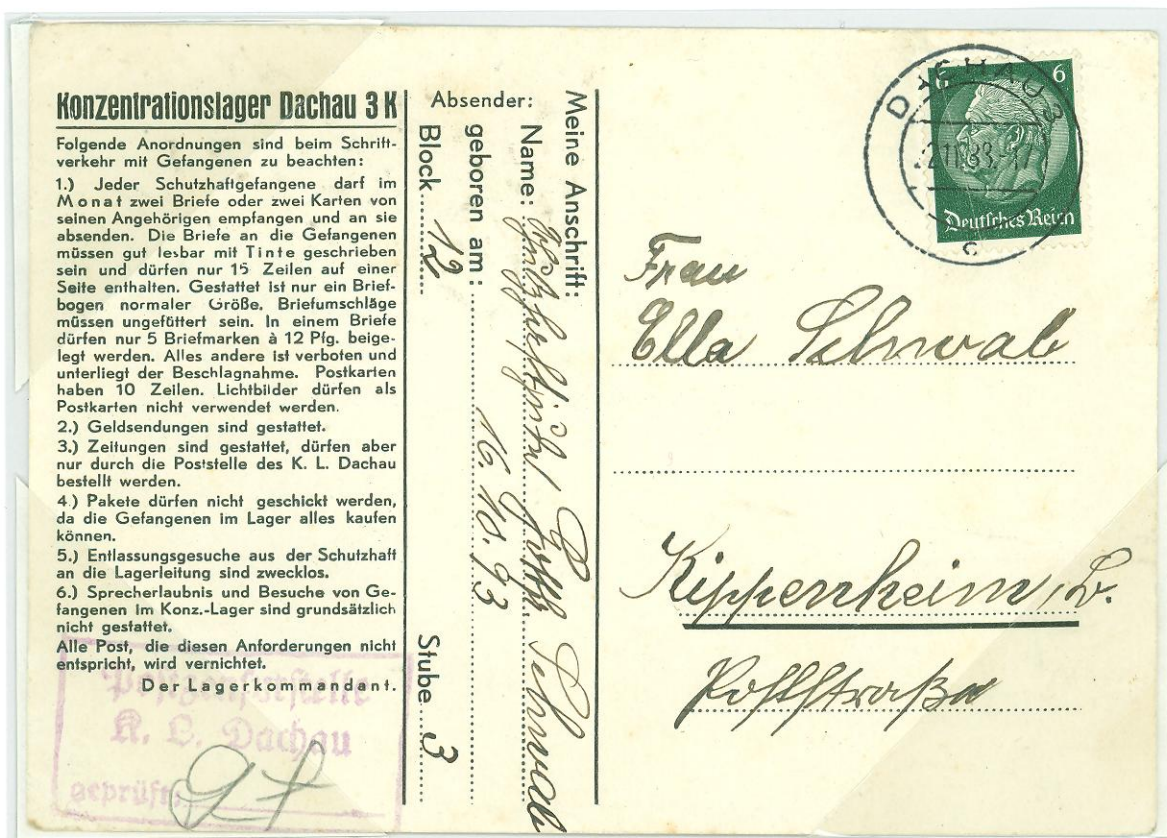 Konzentrationslager Dachau 3 K
Folgende Anordnungen sind beim Schrift-
verkehr mit Gefangenen zu beachten:
1.) Jeder Schutzhaftgefangene darf im
Monat zwei Briefe oder zwei Karten von
seinen Angehörigen empfangen und an sie
absenden. Die Briefe an die Gefangenen
müssen gut lesbar mit Tinte geschrieben
sein und dürfen nur 15 Zeilen auf einer
Seite enthalten. Gestattet ist nur ein Brief-
bogen normaler Größe. Briefumschläge
müssen ungefüttert sein. In einem Briefe
dürfen nur 5 Briefmarken à 12 Pfg. beige-
legt werden. Alles andere ist verboten und
unterliegt der Beschlagnahme. Postkarten
haben 10 Zeilen. Lichtbilder dürfen als
Postkarten nicht verwendet werden.
2.) Geldsendungen sind gestattet.
3.) Zeitungen sind gestattet, dürfen aber
nur durch die Poststelle des K. L. Dachau
bestellt werden.
4.) Pakete dürfen nicht geschickt werden,
da die Gefangenen im Lager alles kaufen
können.
5.) Entlassungsgesuche aus der Schutzhaft
an die Lagerleitung sind zwecklos.
6.) Sprecherlaubnis und Besuche von Ge-
fangenen im Konz.-Lager sind grundsätzlich
nicht gestattet.
Alle Post, die diesen Anforderungen nicht
entspricht, wird vernichtet.
Der Lagerkommandant.
Postzensurstelle
K. L. Dachau
geprüft:
Absender:
Meine Anschrift:
Name: Schutzhäftling Schwab
geboren am: 16. 10. 93
Block 12 Stube 3
DACHAU 3
c
6 6
Deutsches Reich
Frau
Ella Schwab
Kippenheim, B.
Poststraße